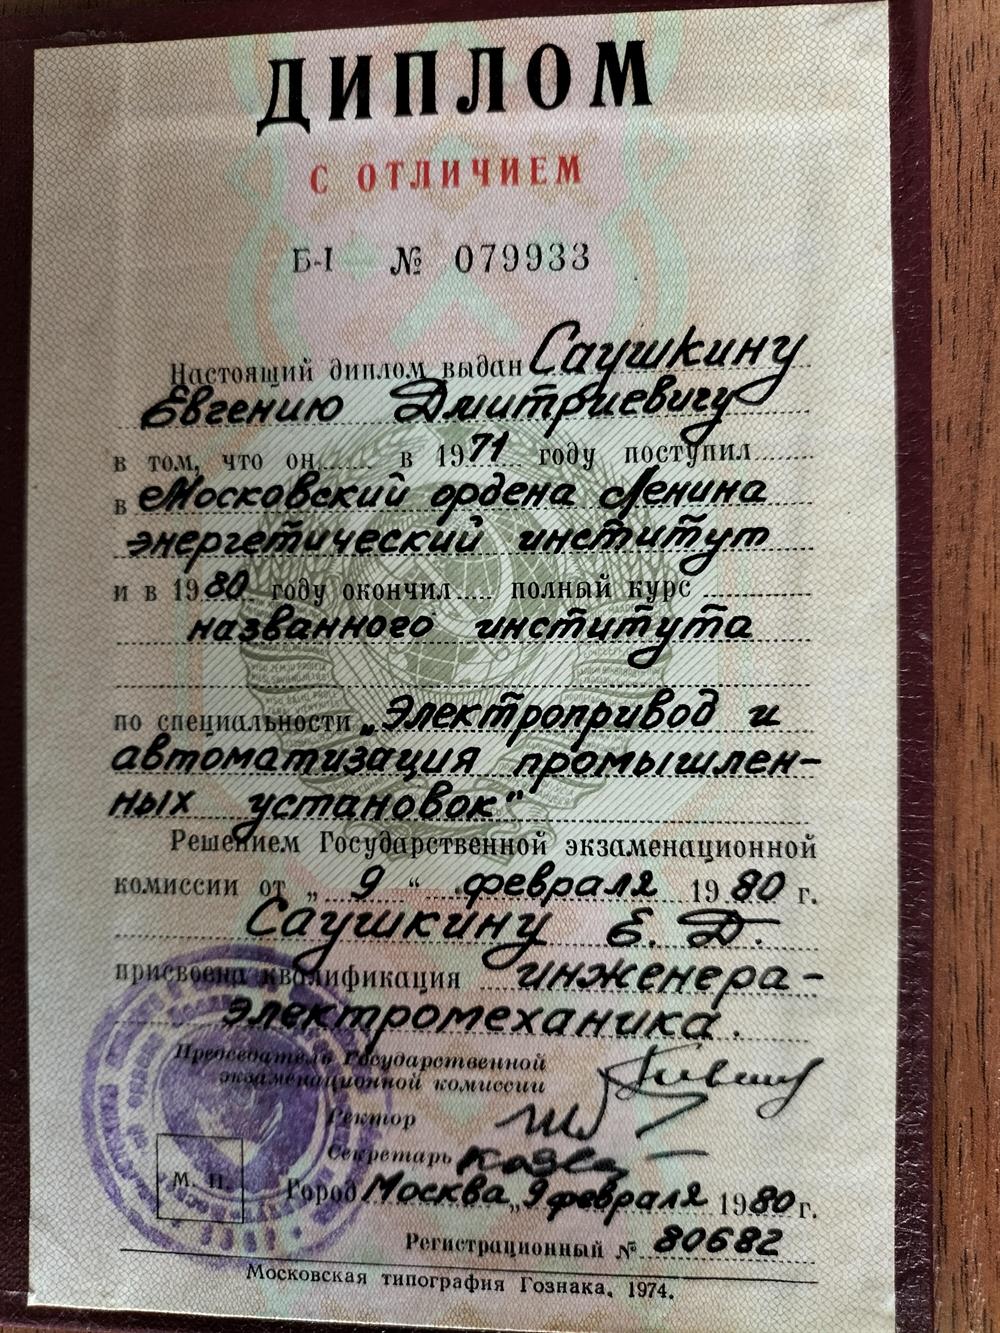 ДИПЛОМ
С ОТЛИЧИЕМ
Б-I № 079933
Настоящий диплом выдан Саушкину
Евгению Дмитриевичу
в том, что он в 1971 году поступил
в Московский ордена Ленина
энергетический институт
и в 1980 году окончил полный курс
названного института
по специальности „Электропривод и
автоматизация промышлен-
ных установок"
Решением Государственной экзаменационной
комиссии от „ 9 “ февраля 1980 г.
Саушкину Е. Д.
присвоена квалификация инженера-
электромеханика.
Председатель Государственной
экзаменационной комиссии
Ректор
Секретарь
М. П.
Город Москва, „9 февраля 1980 г.
Регистрационный № 80682
Московская типография Гознака. 1974.